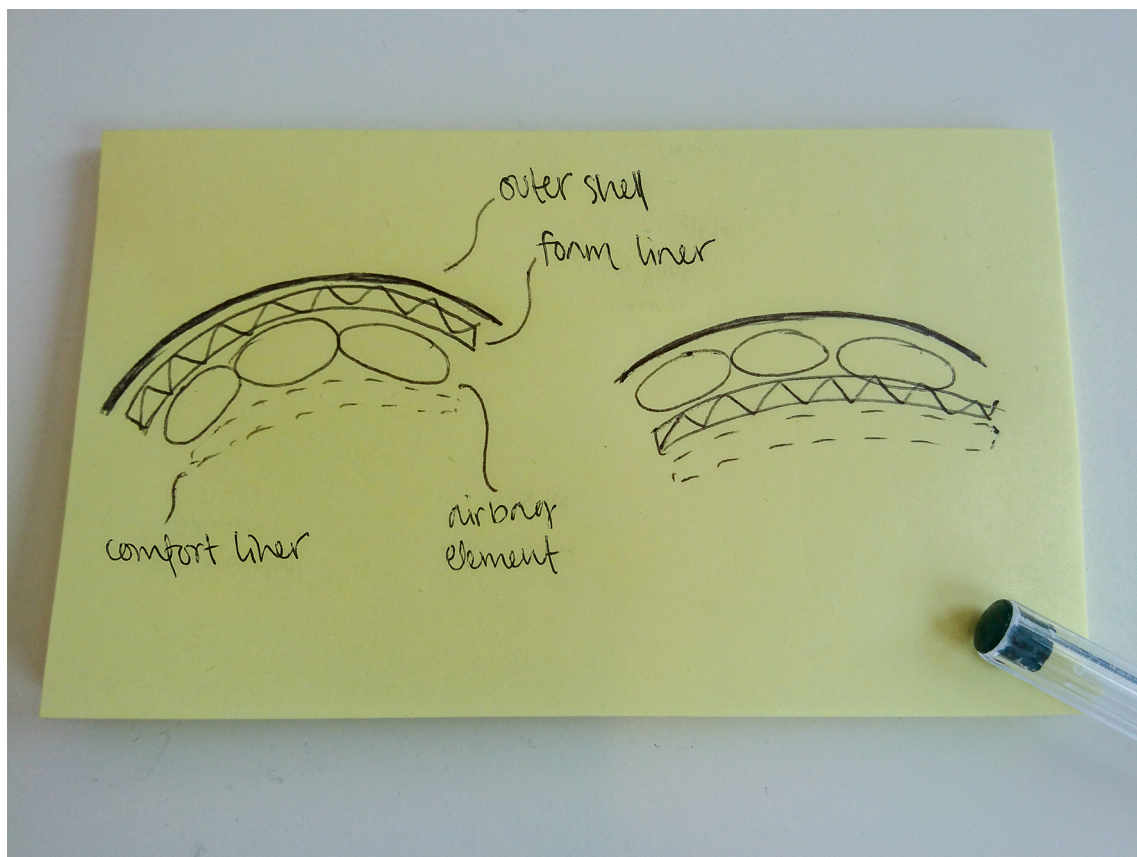 outer shell
foam liner
comfort liner
airbag
element